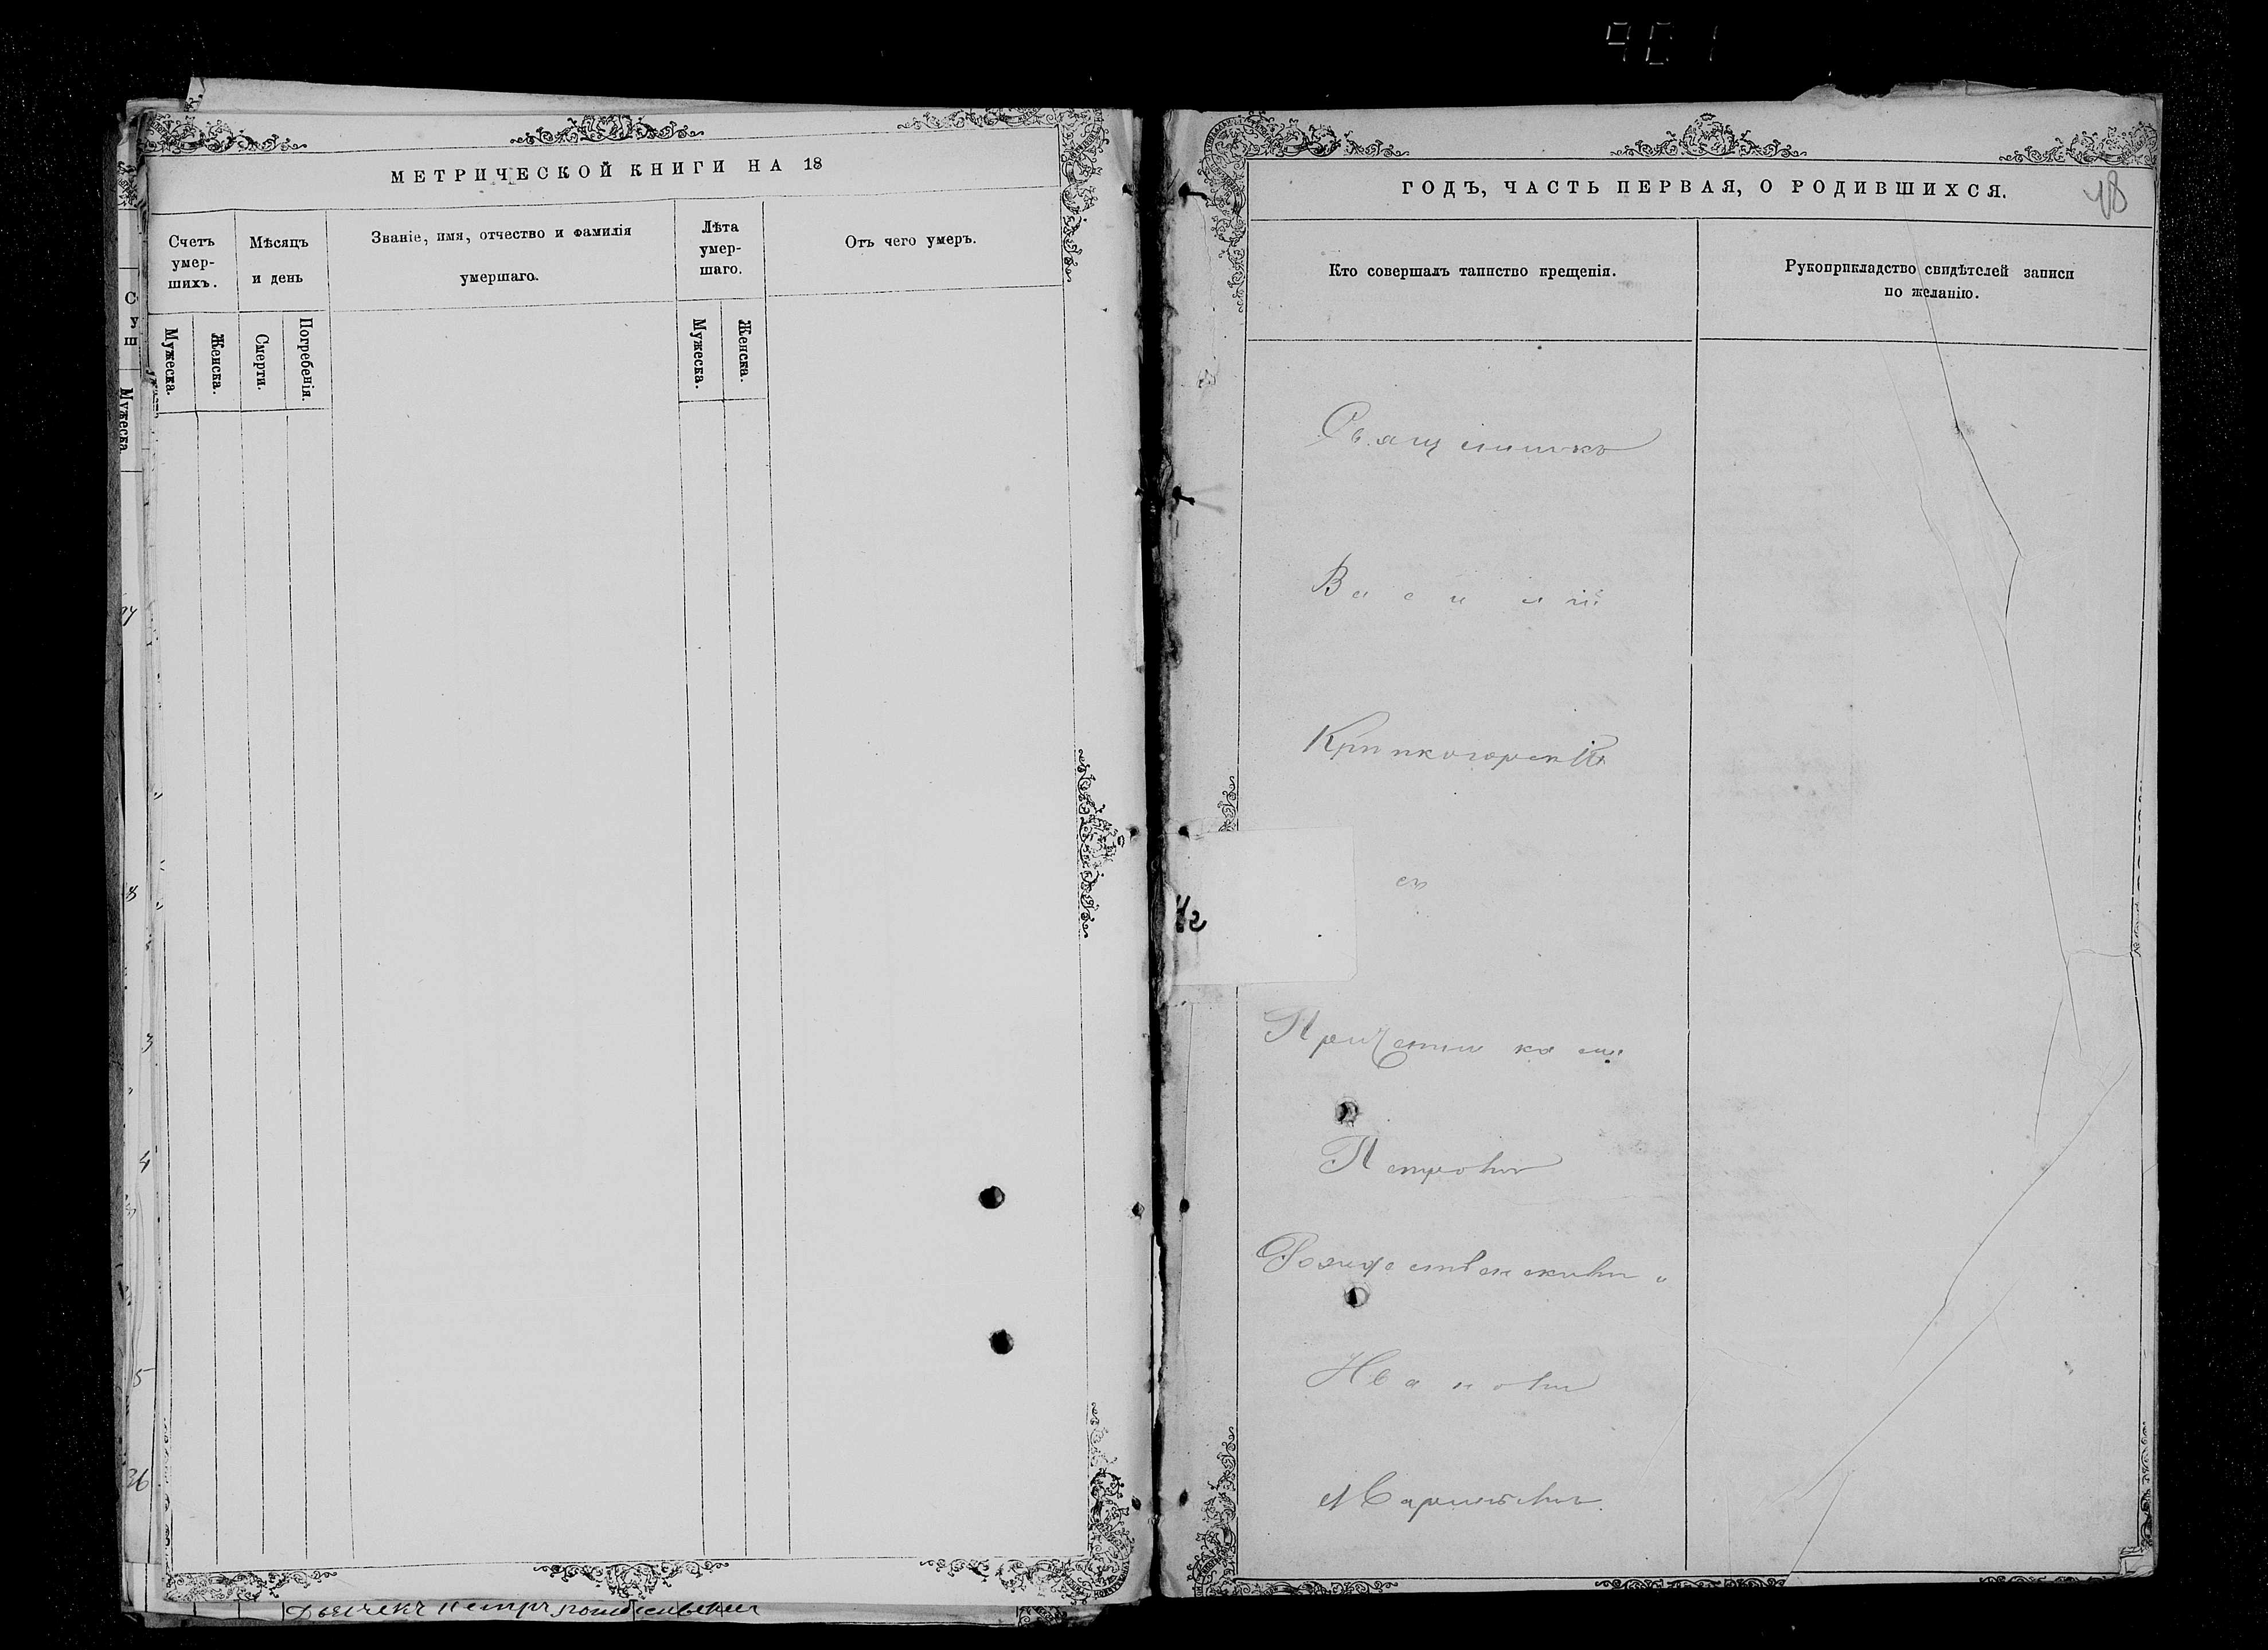 901
МЕТРИЧЕСКОЙ КНИГИ НА 18
Счетъ умер-шихъ.
Мѣсяцъ и день
Званіе, имя, отчество и фамилія умершаго.
Лѣта умер-шаго.
Отъ чего умеръ.
Мужеска.
Женска.
Смерти.
Погребенія.
Мужеска.
Женска.
Мужеска
3
4
5
26
ГОДЪ, ЧАСТЬ ПЕРВАЯ, О РОДИВШИХСЯ.
18
Кто совершалъ таинство крещенія.
Рукоприкладство свидѣтелей записи
по желанію.
Священникъ
Василій
съ
Причетникомъ
Петромъ
Рождественскимъ
Дьячекъ Петръ Рождественскій